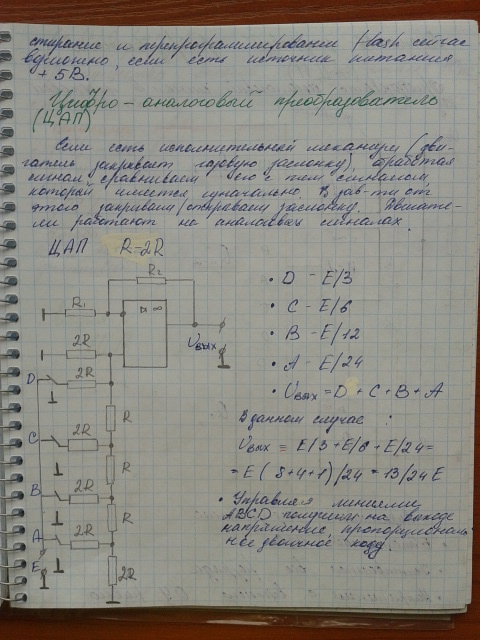 стирание и перепрограммировании flash сейчас
вдможно, если есть источник питания
+5В.
Цифро-аналоговый преобразователь
(ЦАП)
Если есть исполнительный механизм (дви-
гатель закрывает газовую заслонку)
сигнал сравниваем его с тем сигналом,
который имеется изначально. В зав-ти от
этого закрываем/открываем заслонку. Двигате-
ли работают на аналоговых сигналах.
ЦАП R-2R
R2
R1
▷ ∞
2R
Uвых
D 2R
R
C 2R
R
B 2R
R
A 2R
E
2R
• D - E/3
• C - E/6
• B - E/12
• A - E/24
• Uвых = D + C + B + A
В данном случае :
Uвых = E/3 + E/6 + E/24 =
= E ( 8+4+1)/24 = 13/24 E
• Управляя линиями
ABCD получим на выходе
напряжение, пропорциональ-
ное двоичное коду.